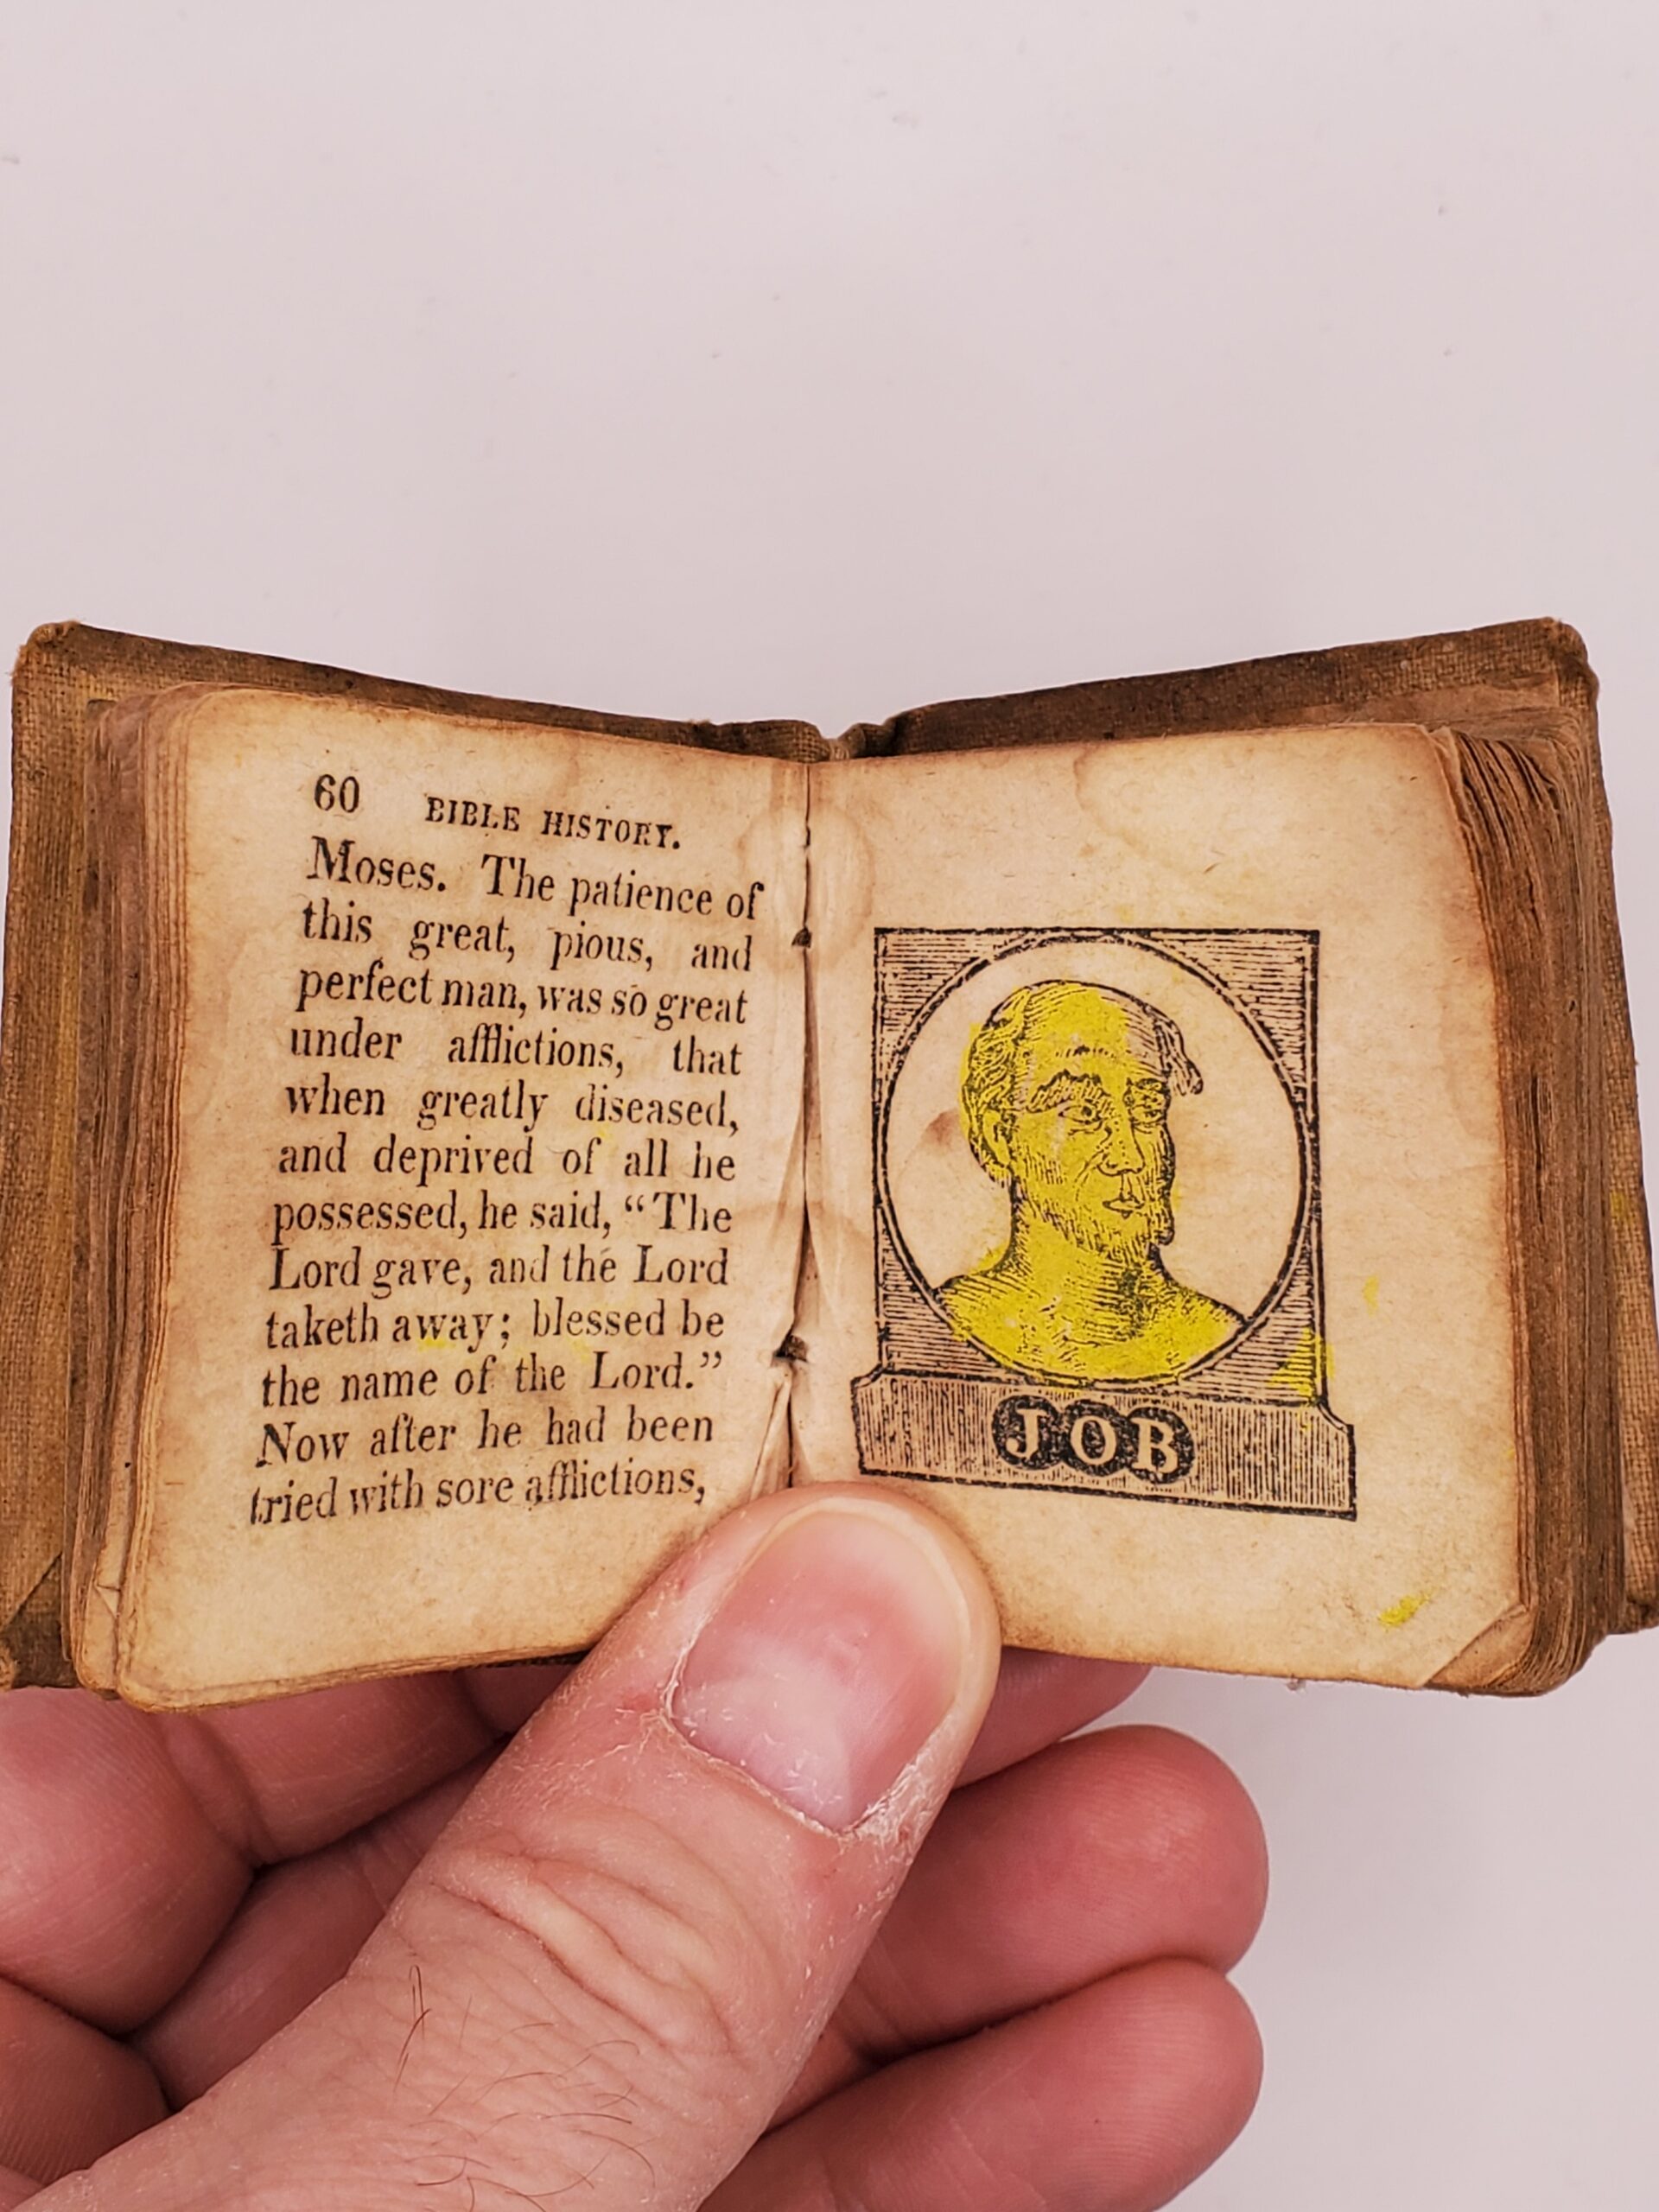 60 BIBLE HISTORY.
Moses. The patience of
this great, pious, and
perfect man, was so great
under afflictions, that
when greatly diseased,
and deprived of all he
possessed, he said, “The
Lord gave, and the Lord
taketh away; blessed be
the name of the Lord.”
Now after he had been
tried with sore afflictions,
JOB